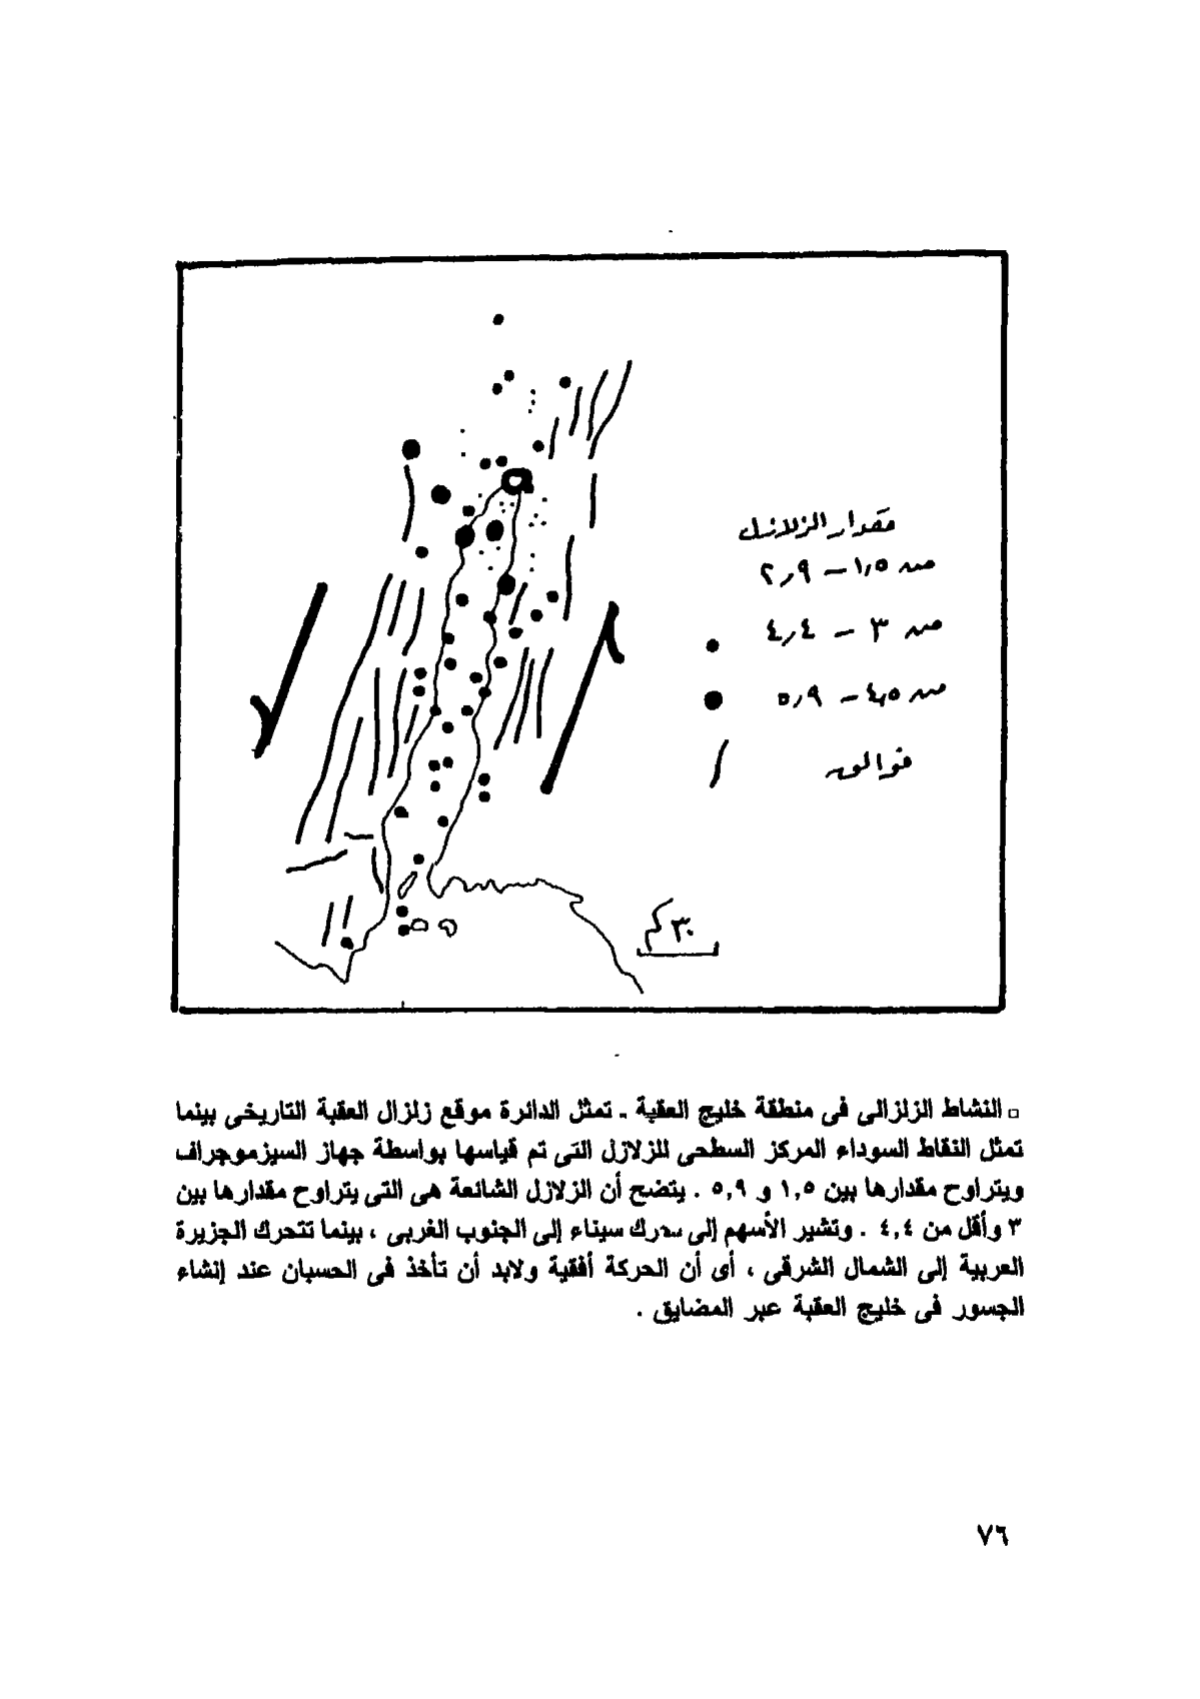 مقدار الزلازل
من ١,٥ – ٢,٩
من ٣ – ٤,٤
من ٤,٥ – ٥,٩
فوالق
٣٠ كم
□ النشاط الزلزالى فى منطقة خليج العقبة ـ تمثل الدائرة موقع زلزال العقبة التاريخى بينما
تمثل النقاط السوداء المركز السطحى للزلازل التى تم قياسها بواسطة جهاز السيزموجراف
ويتراوح مقدارها بين ١,٥ و ٥,٩ . يتضح أن الزلازل الشائعة هى التى يتراوح مقدارها بين
٣ وأقل من ٤,٤ . وتشير الأسهم إلى تحرك سيناء إلى الجنوب الغربى ، بينما تتحرك الجزيرة
العربية إلى الشمال الشرقى ، أى أن الحركة أفقية ولابد أن تأخذ فى الحسبان عند إنشاء
الجسور فى خليج العقبة عبر المضايق .
٧٦